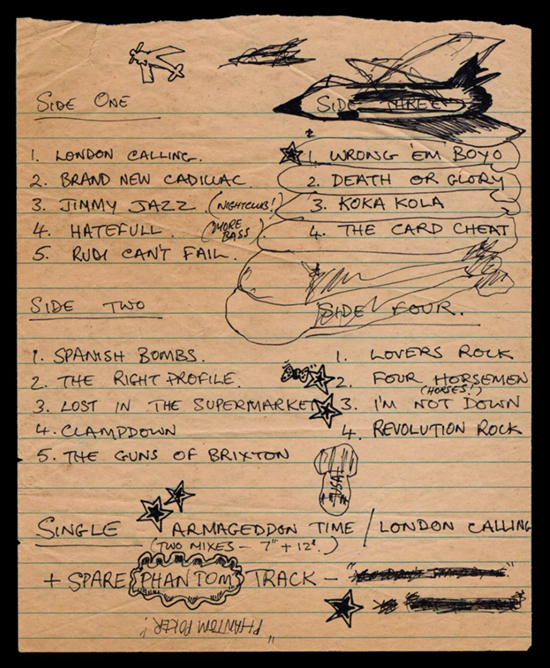 SIDE ONE
1. LONDON CALLING.
2. BRAND NEW CADILLAC.
3. JIMMY JAZZ. (NIGHTCLUB!)
4. HATEFULL. (MORE BASS)
5. RUDI CAN'T FAIL.
SIDE TWO
1. SPANISH BOMBS.
2. THE RIGHT PROFILE.
3. LOST IN THE SUPERMARKET
4. CLAMPDOWN
5. THE GUNS OF BRIXTON
SIDE THREE
1. WRONG 'EM BOYO
2. DEATH OR GLORY
3. KOKA KOLA
4. THE CARD CHEAT
SIDE FOUR.
1. LOVERS ROCK
2. FOUR HORSEMEN
(HORSES!)
3. I'M NOT DOWN
4. REVOLUTION ROCK
SINGLE ARMAGEDDON TIME / LONDON CALLING
(TWO MIXES – 7" + 12".)
+ SPARE PHANTOM TRACK –
"PHANTOM POKER!